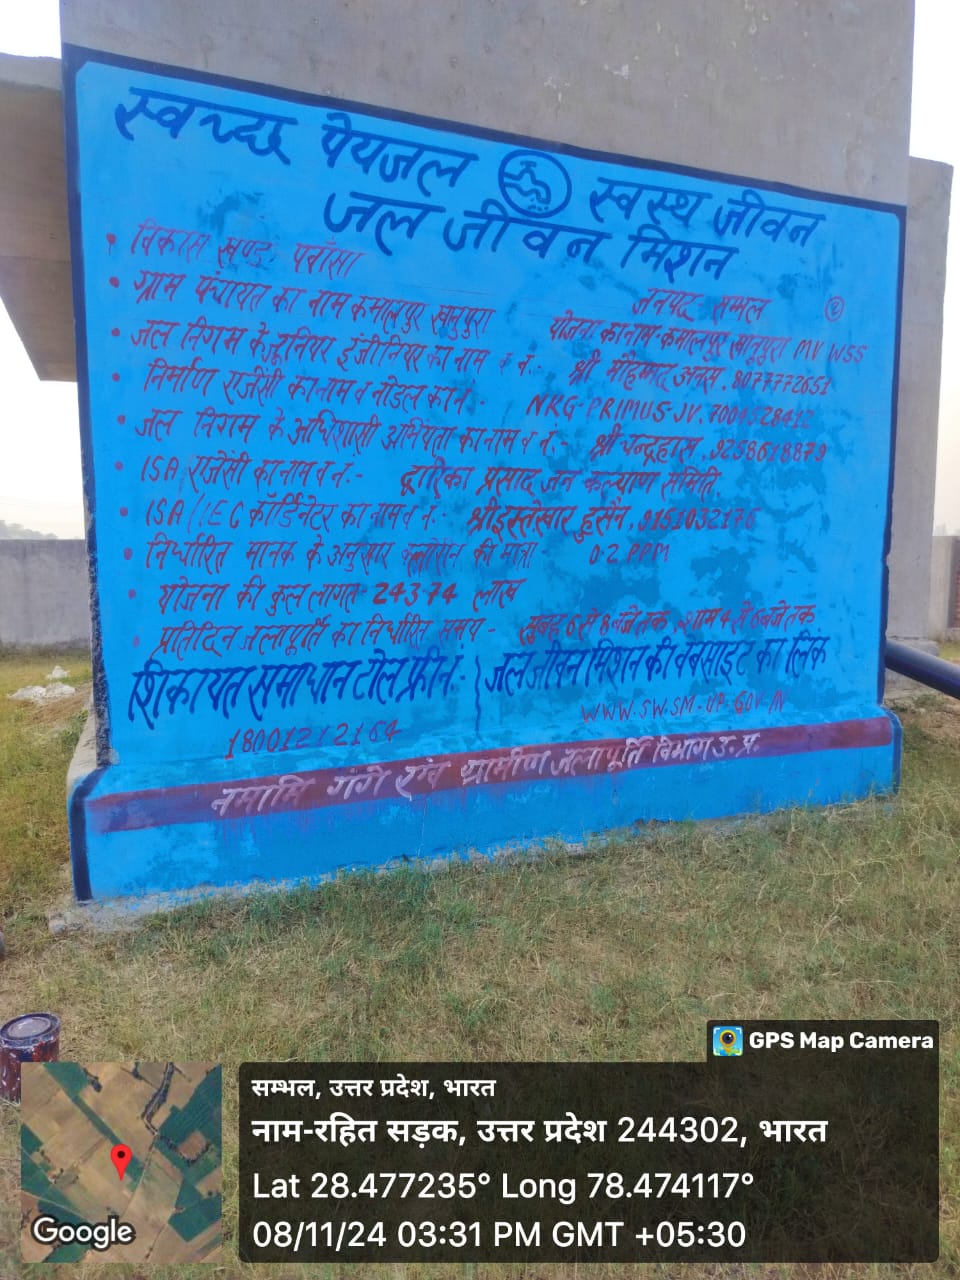 स्वच्छ पेयजल स्वस्थ जीवन
जल जीवन मिशन
विकास खण्ड: पवाँसा
जनपद सम्भल
ग्राम पंचायत का नाम कमालपुर खानुपुरा
योजना का नाम-कमालपुर खानूपुरा MV WSS
जल निगम के जूनियर इंजीनियर का नाम व नं.- श्री मौहम्मद अनस. 8077772651
निर्माण एजेंसी का नाम व नोडल का नं - NRG-PRIMUS-JV. 7004528412
जल निगम के अधिशासी अभियंता का नाम व नं. श्री चन्द्रहास. 9258618879
ISA एजेंसी का नाम व नं.- द्वारिका प्रसाद जन कल्याण समिति.
ISA/IEC कॉर्डिनेटर का नाम व नं. श्री इस्तेखार हुसैन. 9151032176
निर्धारित मानक के अनुसार क्लोरीन की मात्रा 0.2 PPM
योजना की कुल लागत- 243.74 लाख
प्रतिदिन जलापूर्ति का निर्धारित समय - सुबह 6 से 8 बजे तक, शाम 4 से 6 बजे तक
शिकायत समाधान टोल फ्री नं.- जल जीवन मिशन की वेबसाइट का लिंक
18001212164 WWW.SWSM-UP.GOV.IN
नमामि गंगे एवं ग्रामीण जलापूर्ति विभाग उ.प्र.
GPS Map Camera
सम्भल, उत्तर प्रदेश, भारत
नाम-रहित सड़क, उत्तर प्रदेश 244302, भारत
Lat 28.477235° Long 78.474117°
08/11/24 03:31 PM GMT +05:30
Google